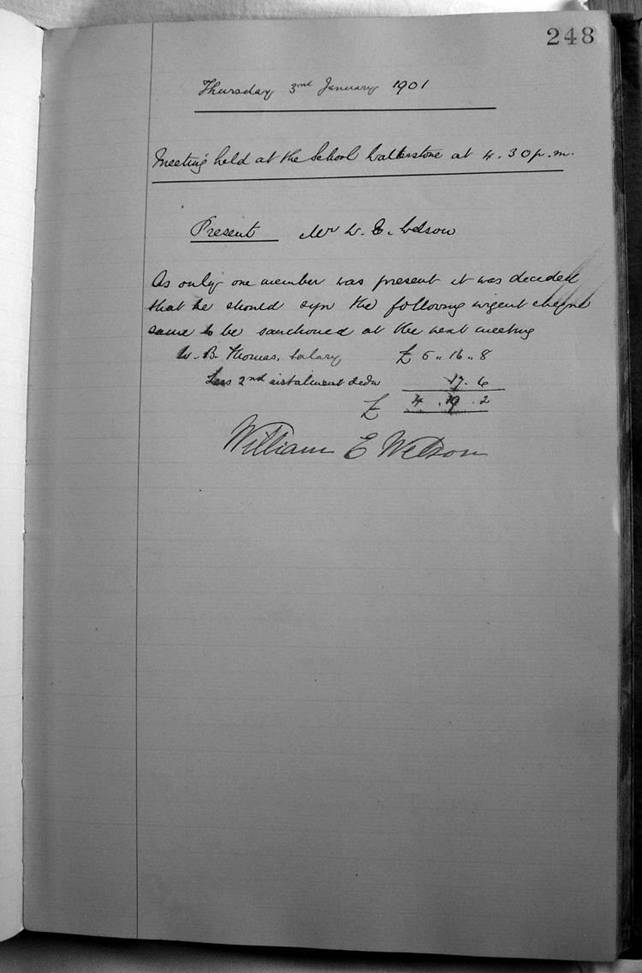 248
Thursday 3rd January 1901
Meeting held at the School Walterstone at 4.30 p.m.
Present Mr W. E.
As only one member was present it was decided
that he should sign the following urgent cheque
same to be sanctioned at the next meeting
W. B. Thomas, Salary £ 5 " 16 " 8
Less 2nd instalment dedn 17 . 6
£ 4 . 19 . 2
William E